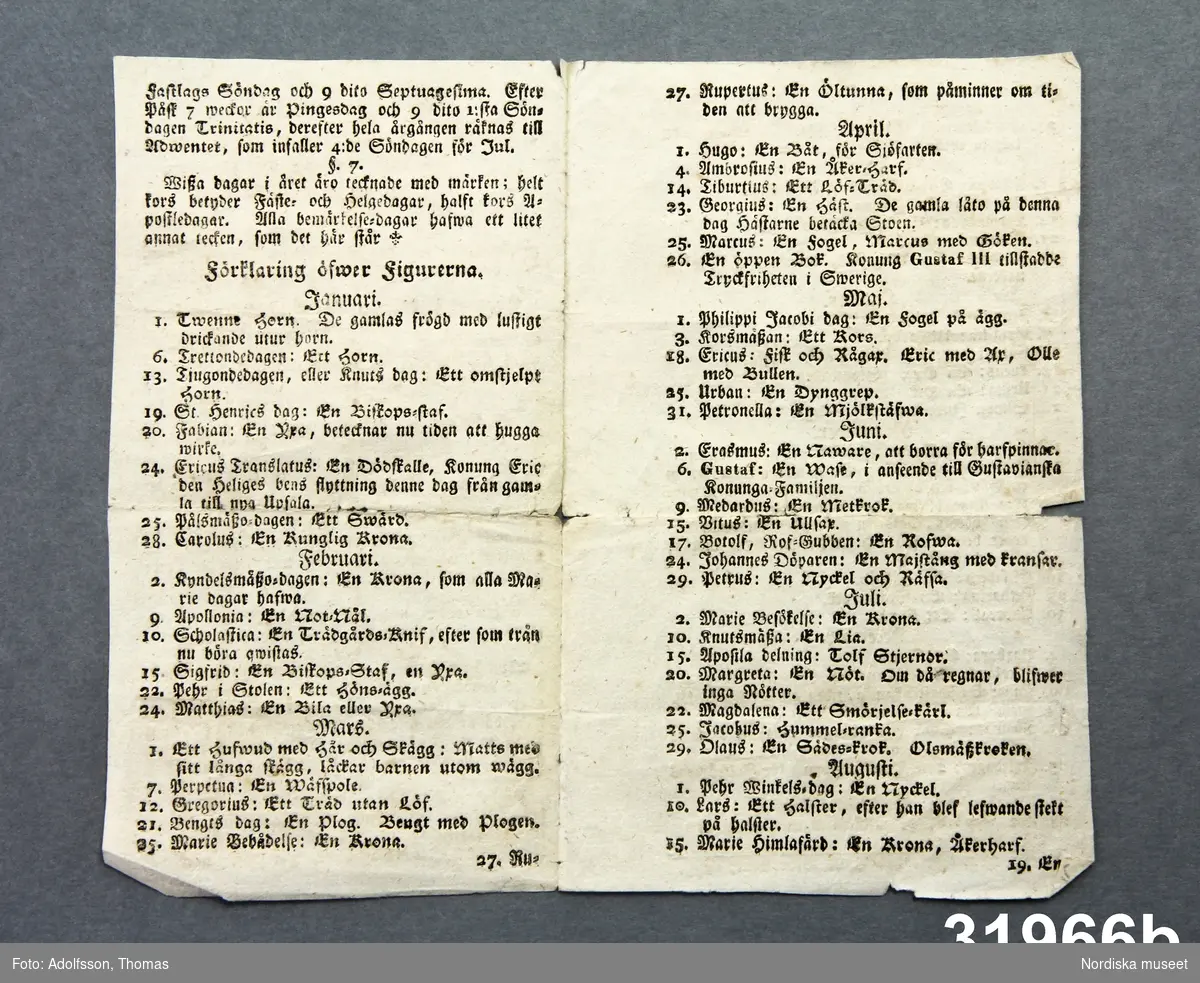 Fastlags Söndag och 9 dito Septuagesima. Efter
Påsk 7 weckor är Pingesdag och 9 dito 1:sta Sön-
dagen Trinitatis, derefter hela årgången räknas till
Adwentet, som infaller 4:de Söndagen för Jul.
§. 7.
Wißa dagar i året äro tecknade med märken; helt
kors betyder Fäste- och Helgedagar, halft kors A-
postledagar. Alla bemärkelse-dagar hafwa ett litet
annat tecken, som det här står ✣
Förklaring öfwer Figurerna.
Januari.
1. Twenne Horn. De gamlas frögd med lustigt
drickande utur horn.
6. Trettondedagen: Ett Horn.
13. Tjugondedagen, eller Knuts dag: Ett omstjelpt
Horn.
19. St. Henrics dag: En Biskops-staf.
20. Fabian: En Yxa, betecknar nu tiden att hugga
wirke.
24. Ericus Translatus: En Dödskalle, Konung Eric
den Heliges bens flyttning denne dag från gam-
la till nya Upsala.
25. Pålsmäßo-dagen: Ett Swärd.
28. Carolus: En Kunglig Krona.
Februari.
2. Kyndelsmäßo-dagen: En Krona, som alla Ma-
rie dagar hafwa.
9. Apollonia: En Not-Nål.
10. Scholastica: En Trädgårds-Knif, efter som trän
nu böra qwistas.
15. Sigfrid: En Biskops-Staf, en Yxa.
22. Pehr i Stolen: Ett Höns-ägg.
24. Matthias: En Bila eller Yxa.
Mars.
1. Ett Hufwud med Hår och Skägg: Matts med
sitt långa skägg, låckar barnen utom wägg.
7. Perpetua: En Wäfspole.
12. Gregorius: Ett Träd utan Löf.
21. Bengts dag: En Plog. Bengt med Plogen.
25. Marie Bebådelse: En Krona.
27. Ru-
27. Rupertus: En Öltunna, som påminner om ti-
den att brygga.
April.
1. Hugo: En Båt, för Sjöfarten.
4. Ambrosius: En Åker-Harf.
14. Tiburtius: Ett Löf-Träd.
23. Georgius: En Häst. De gamla låto på denna
dag Hästarne betäcka Stoen.
25. Marcus: En Fogel, Marcus med Göken.
26. En öppen Bok. Konung Gustaf III tillstadde
Tryckfriheten i Swerige.
Maj.
1. Philippi Jacobi dag: En Fogel på ägg.
3. Korsmäßan: Ett Kors.
18. Ericus: Fisk och Rågax. Eric med Ax, Olle
med Bullen.
25. Urban: En Dynggrep.
31. Petronella: En Mjölkstäfwa.
Juni.
2. Erasmus: En Naware, att borra för harfpinnar.
6. Gustaf: En Wase, i anseende till Gustavianska
Konunga-Familjen.
9. Medardus: En Metkrok.
15. Vitus: En Ullsax.
17. Botolf, Rof-Gubben: En Rofwa.
24. Johannes Döparen: En Majstång med kransar.
29. Petrus: En Nyckel och Räfsa.
Juli.
2. Marie Besökelse: En Krona.
10. Knutsmäßa: En Lia.
15. Apostla delning: Tolf Stjernor.
20. Margreta: En Nöt. Om då regnar, blifwer
inga Nötter.
22. Magdalena: Ett Smörjelse-kärl.
25. Jacobus: Hummel-ranka.
29. Olaus: En Sädes-krok. Olsmäßkroken.
Augusti.
1. Pehr Winkels-dag: En Nyckel.
10. Lars: Ett Halster, efter han blef lefwande stekt
på halster.
15. Marie Himlafärd: En Krona, Åkerharf.
19. En
31966b
Foto: Adolfsson, Thomas
Nordiska museet